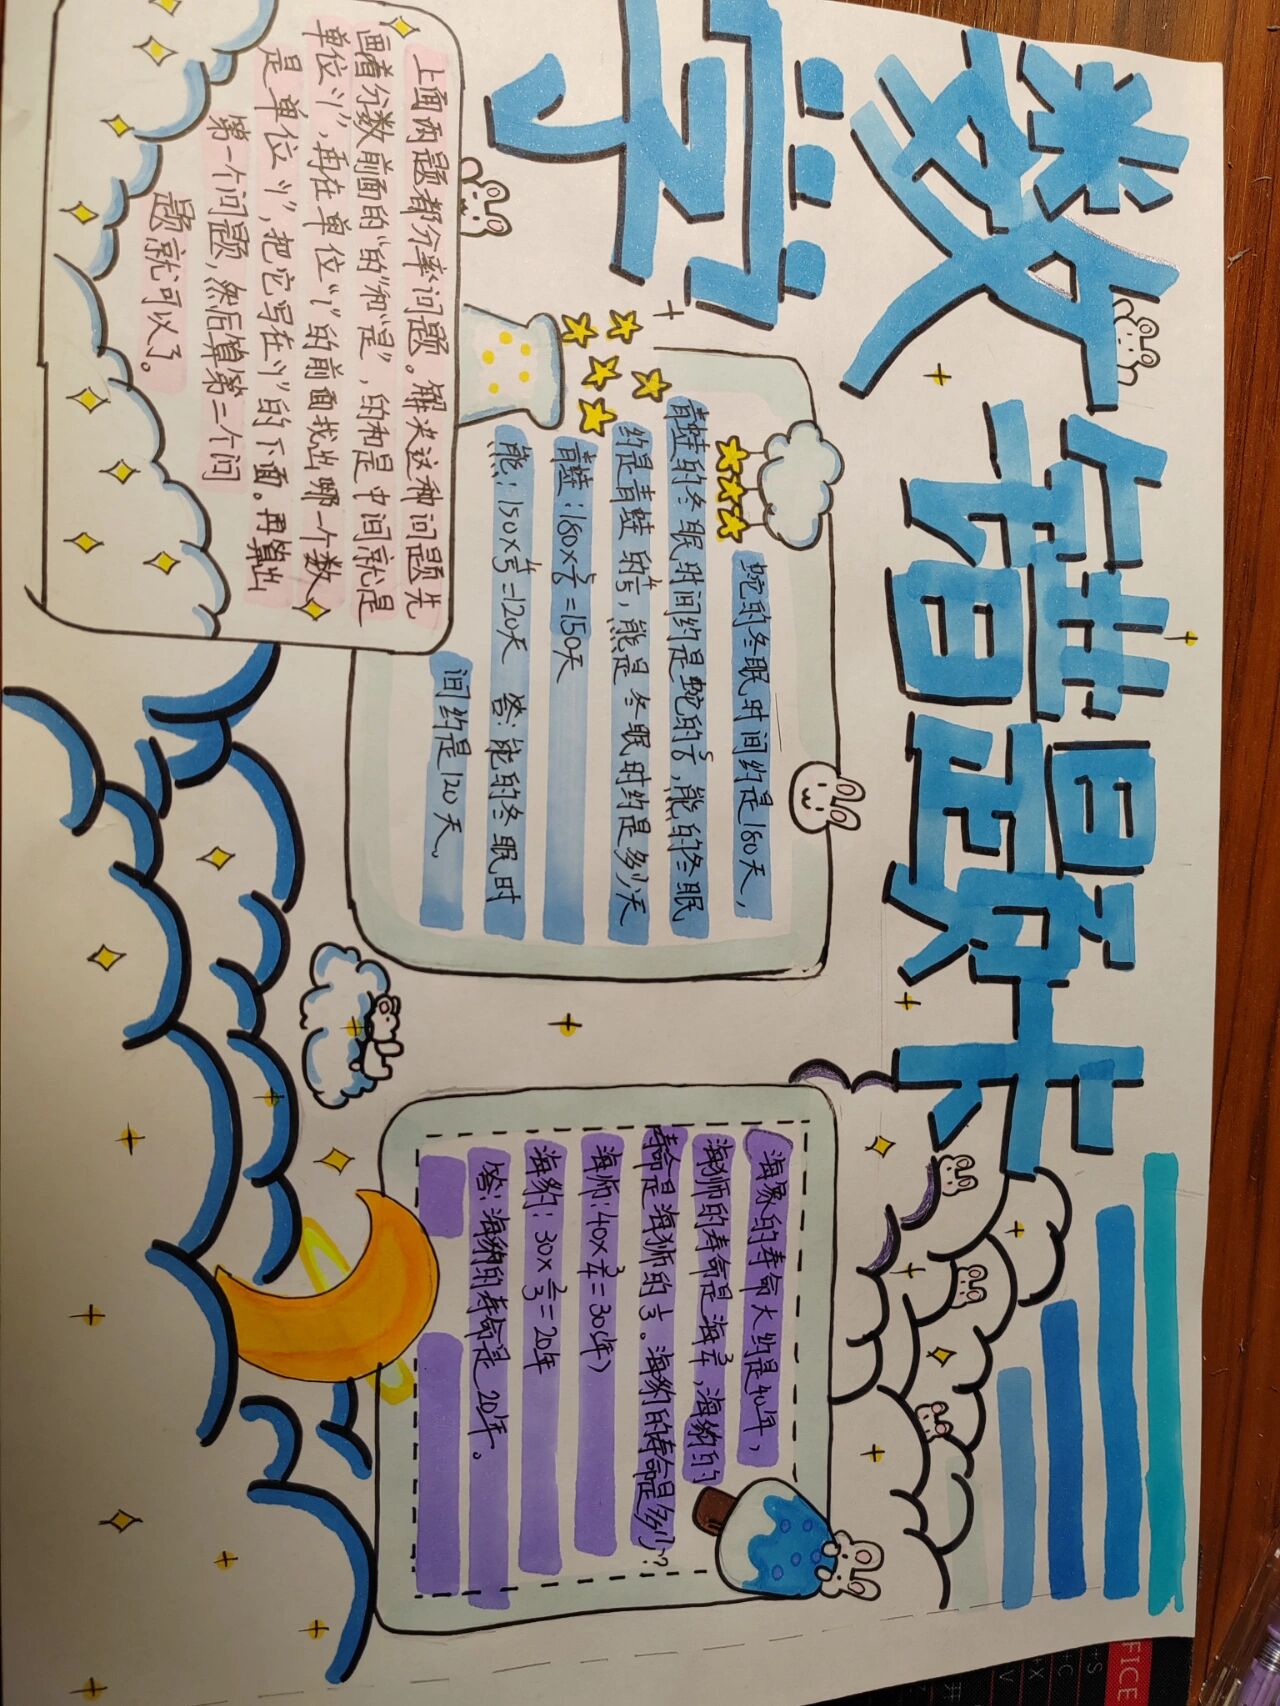 数学错题卡
蛇的冬眠时间约是180天，
青蛙的冬眠时间约是蛇的5/6，熊的冬眠
约是青蛙的4/5，熊是冬眠时约是多少天
青蛙：180×5/6=150天
熊：150×4/5=120天 答：熊的冬眠时
间约是120天。
海象的寿命大约是40年，
海狮的寿命是海3/4，海豹的
寿命是海狮的2/3。海豹的寿命是多少？
海师：40×3/4=30(年)
海豹：30×2/3=20年
答：海豹的寿命是20年。
上面两题都分率问题。解决这种问题先
画着分数前面的“的”和“是”，的和是中间就是
单位“1”，再在单位“1”的前面找出哪一个数
是单位“1”，把它写在“1”的下面。再算出
第一个问题，然后算第二个问
题就可以了。
FICE
+S
+C
+X
+V
开